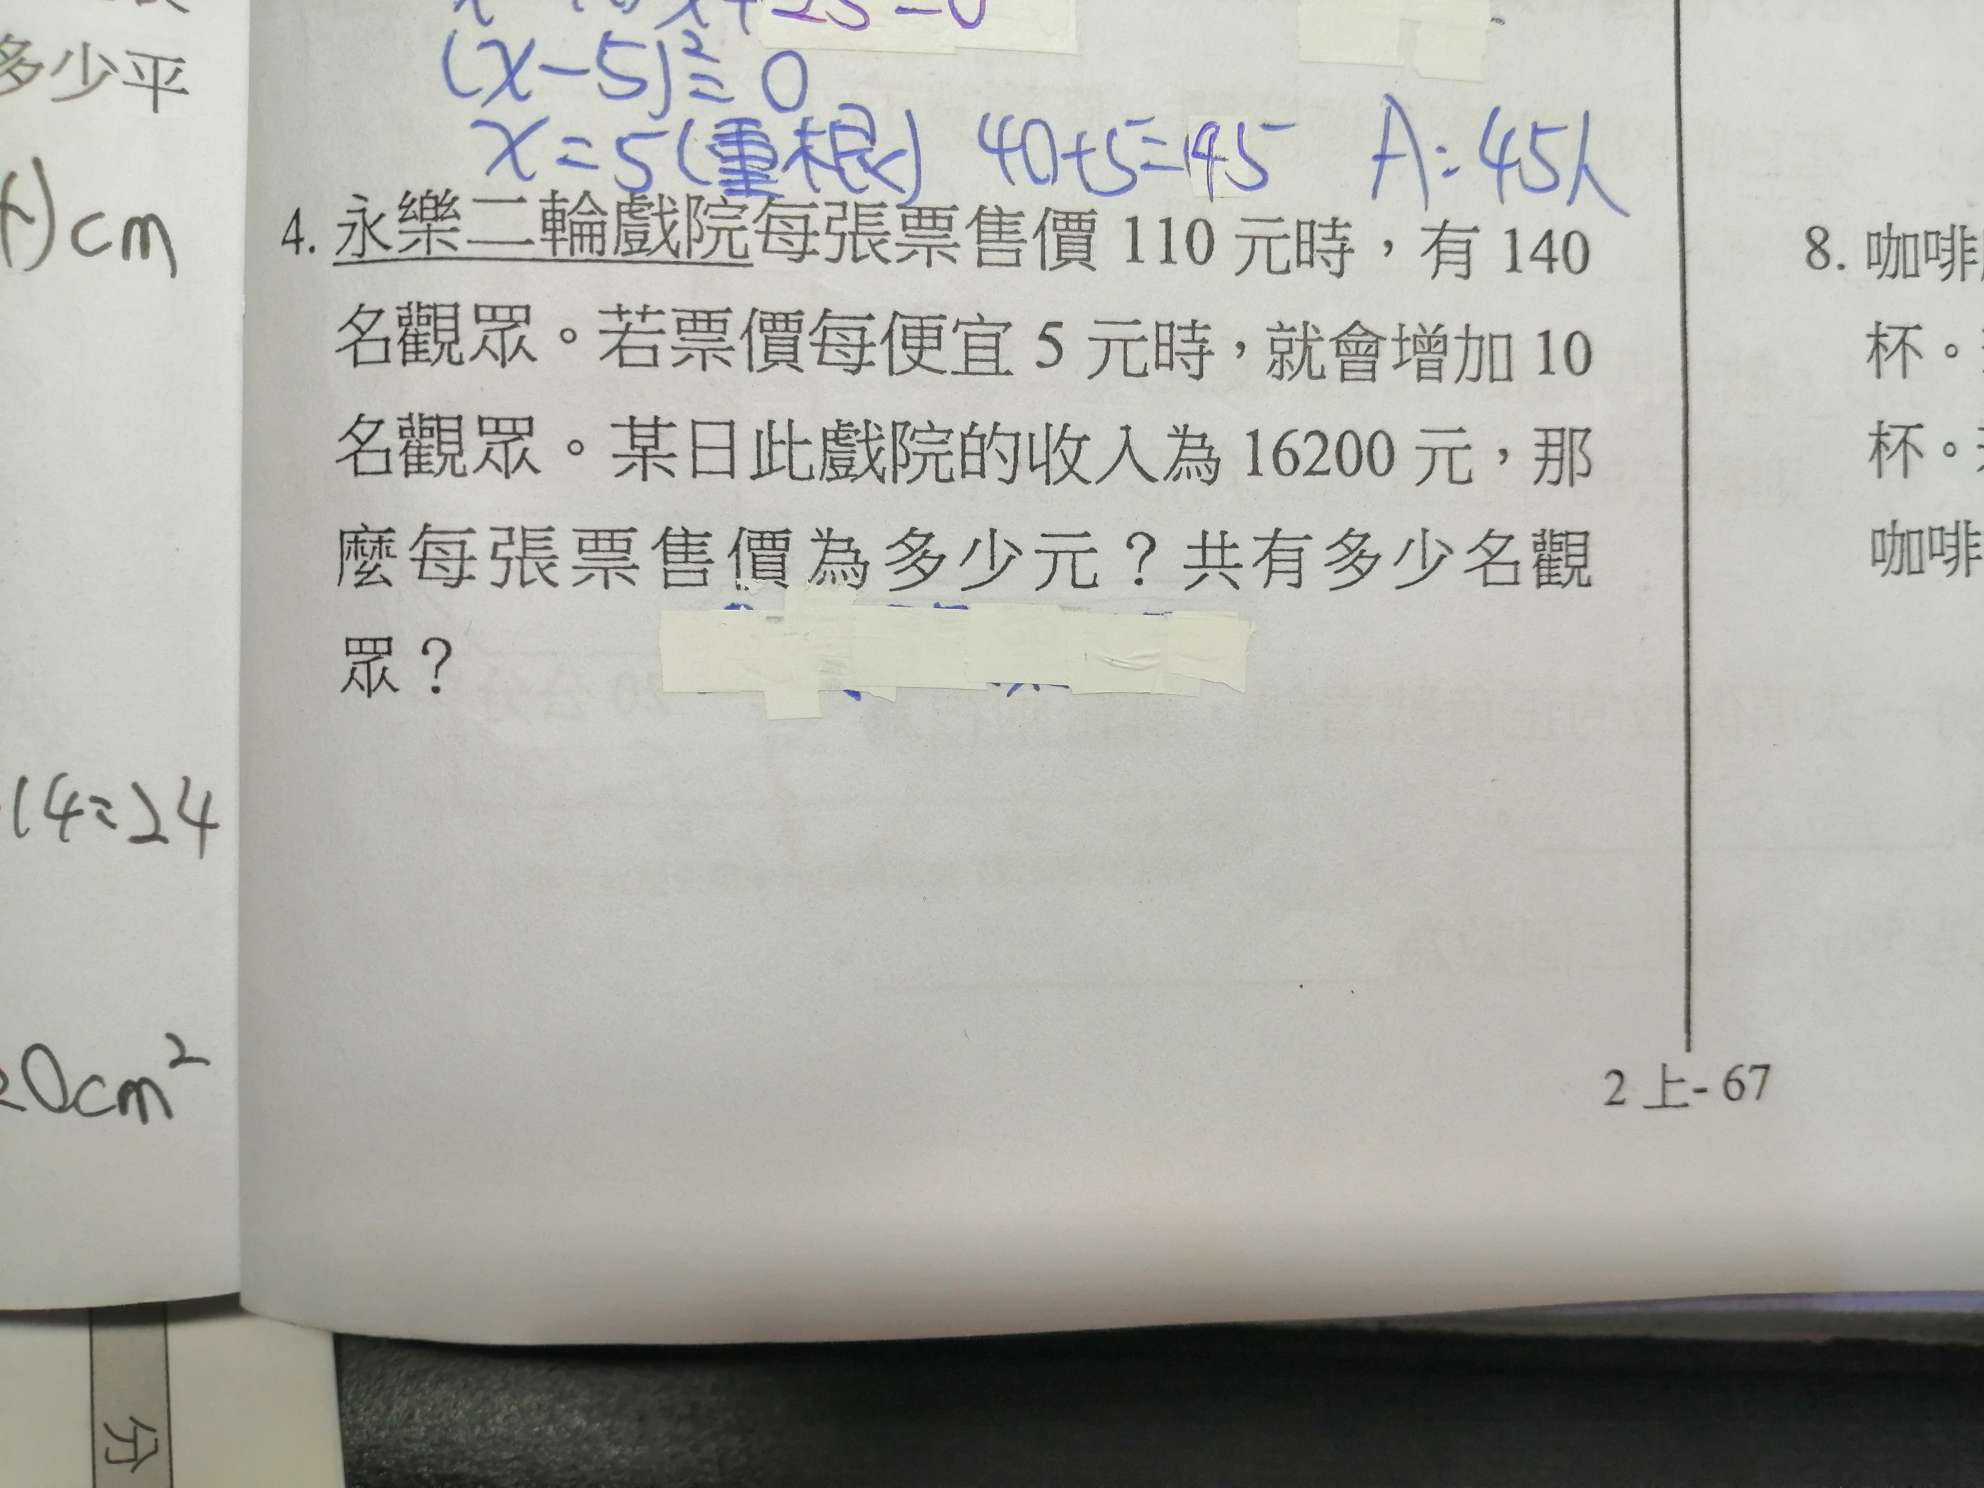 多少平
cm
14=24
20cm²
(x-5)²=0
x=5(重根) 40+5=45 A:45人
4. 永樂二輪戲院每張票售價 110 元時，有 140
名觀眾。若票價每便宜 5 元時，就會增加 10
名觀眾。某日此戲院的收入為 16200 元，那
麼每張票售價為多少元？共有多少名觀
眾？
2 上- 67
8. 咖啡
杯。
杯。
咖啡
分